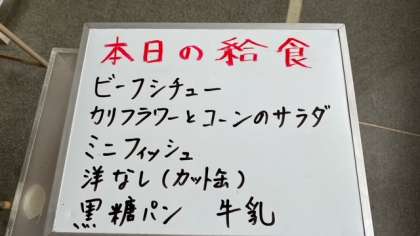 本日の給食
ビーフシチュー
カリフラワーとコーンのサラダ
ミニフィッシュ
洋なし(カット缶)
黒糖パン 牛乳